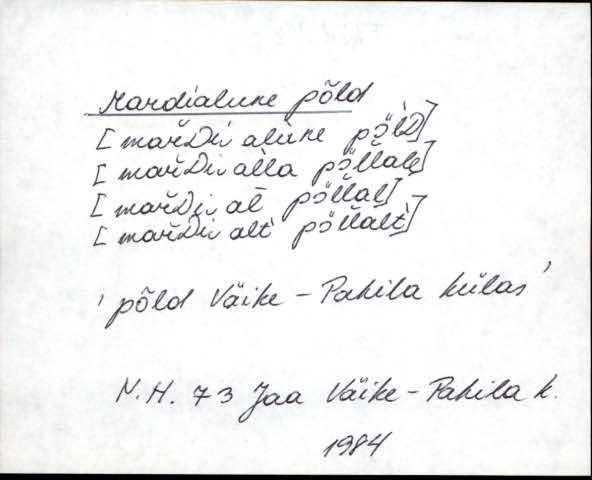 Mardialune põld
[mařDi alùne pö̀lD]
[mařDi alla pöllale]
[mařDi al pöllal]
[mařDi alt pöllalt]
' põld Väike-Pahila külas '
N.H. 73 Jaa Väike-Pahila k.
1984